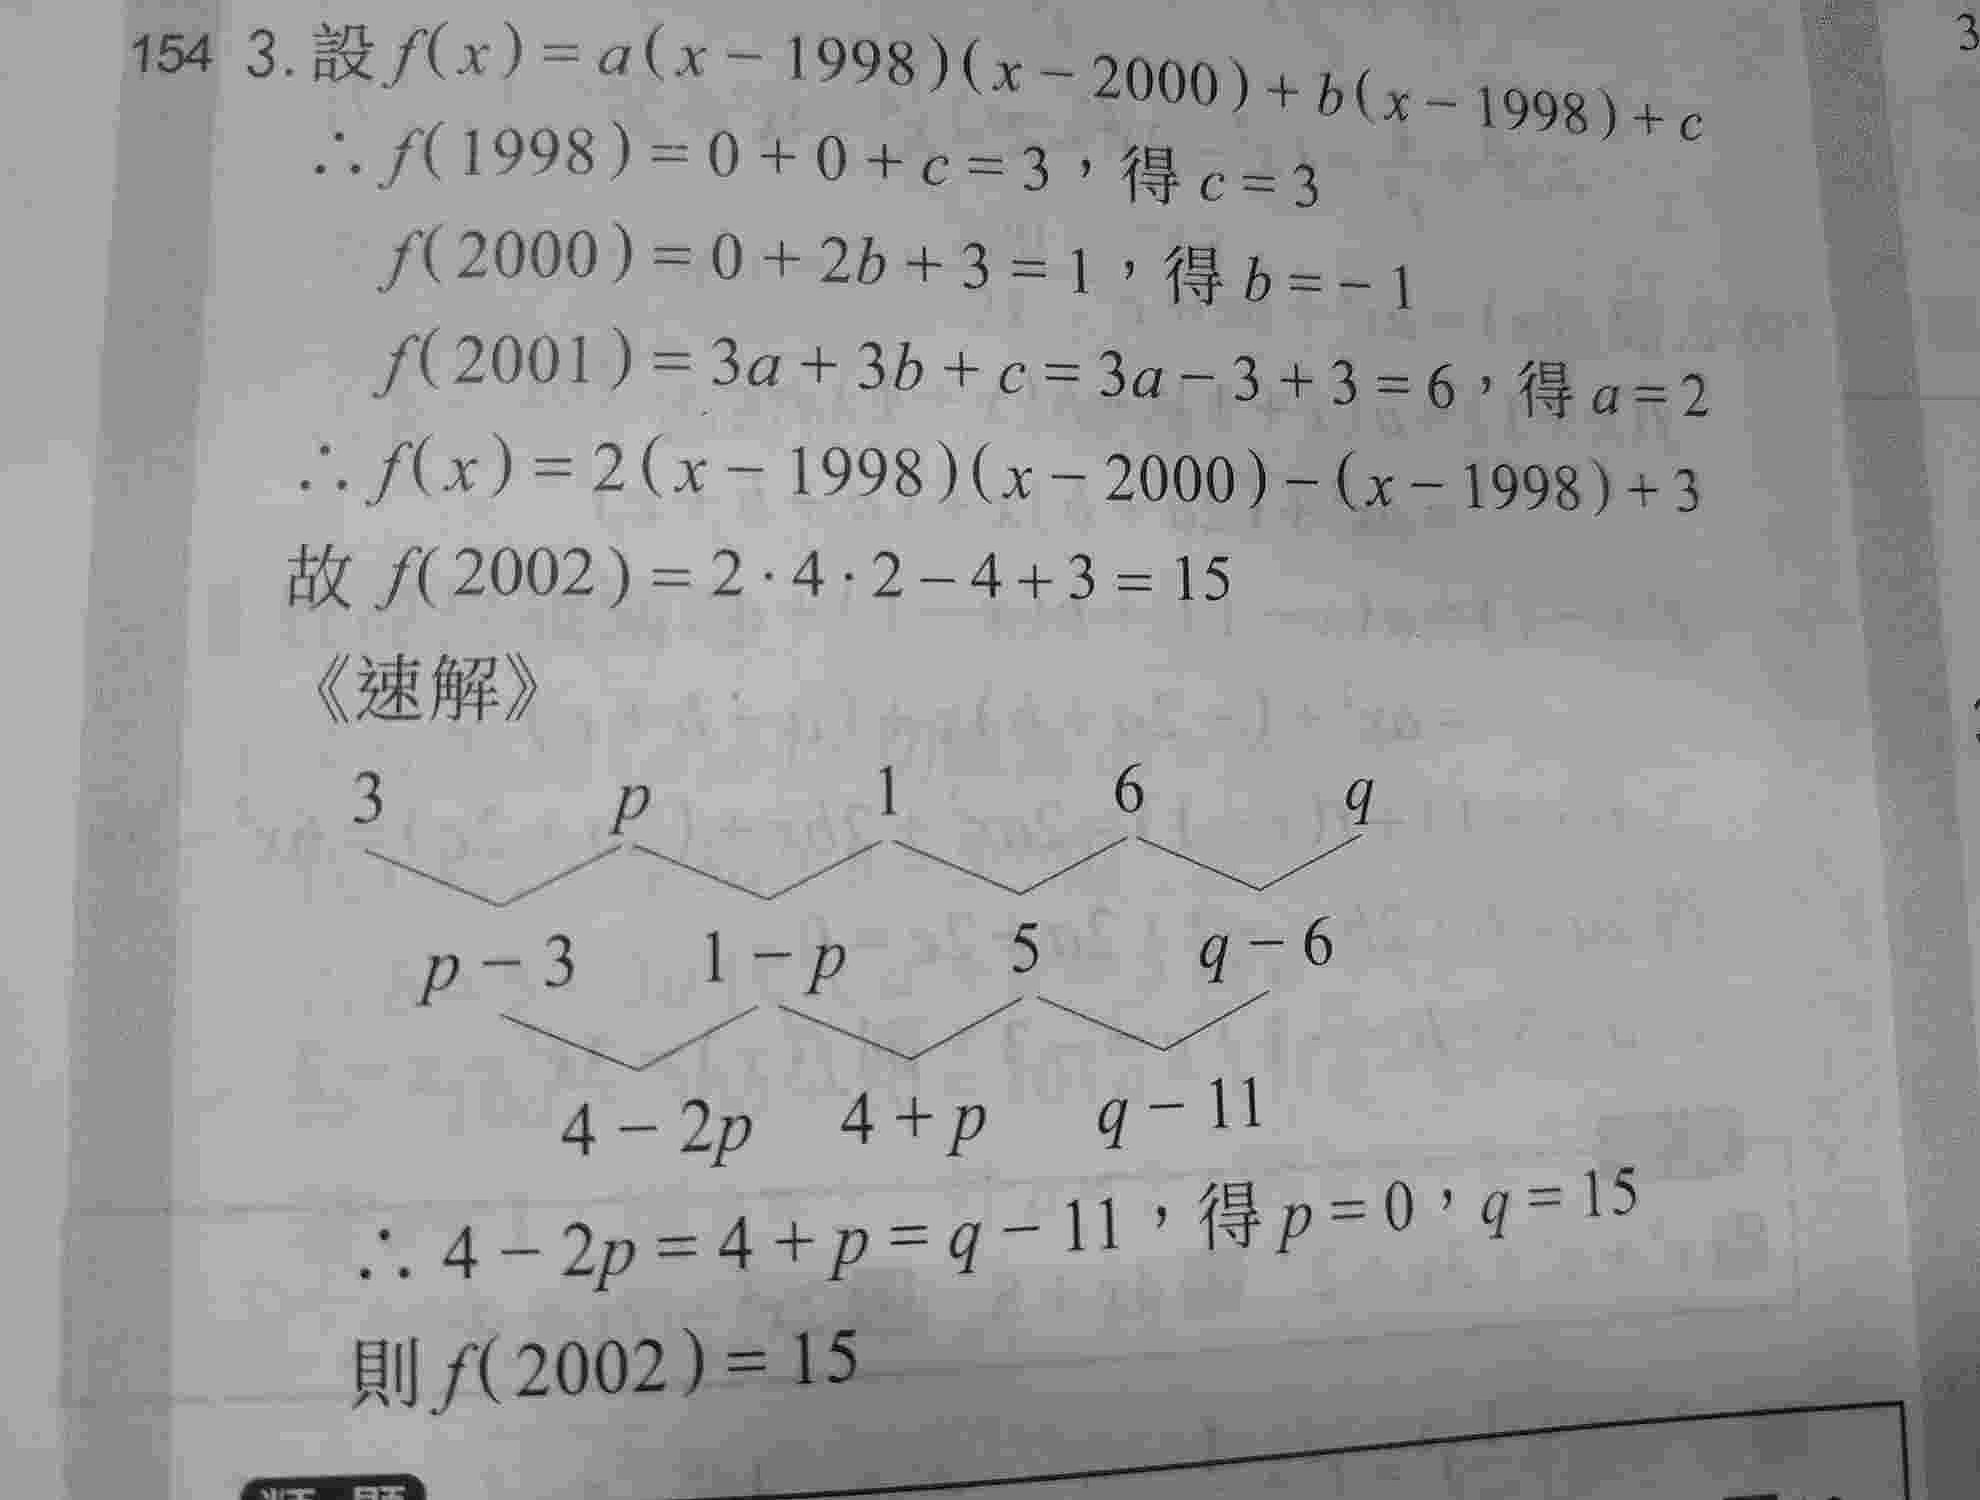 154 3. 設 f(x) = a(x − 1998)(x − 2000) + b(x − 1998) + c
∴ f(1998) = 0 + 0 + c = 3，得 c = 3
f(2000) = 0 + 2b + 3 = 1，得 b = − 1
f(2001) = 3a + 3b + c = 3a − 3 + 3 = 6，得 a = 2
∴ f(x) = 2(x − 1998)(x − 2000) − (x − 1998) + 3
故 f(2002) = 2 · 4 · 2 − 4 + 3 = 15
《速解》
3 p 1 6 q
p − 3 1 − p 5 q − 6
4 − 2p 4 + p q − 11
∴ 4 − 2p = 4 + p = q − 11，得 p = 0，q = 15
則 f(2002) = 15
3